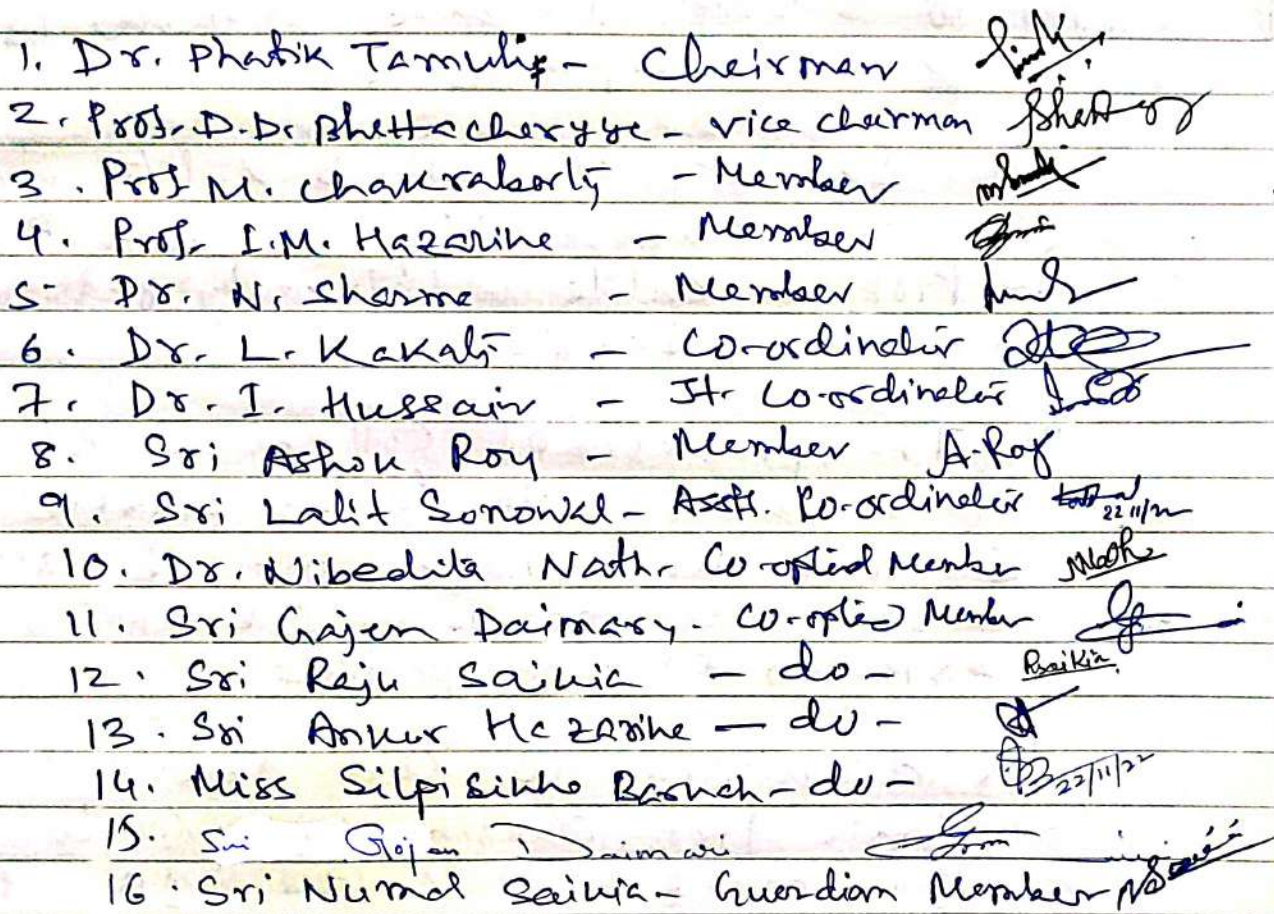 1. Dr. Phatik Tamuli - Chairman
2. Prof. D.D. Bhattacharyye - vice chairman
3. Prof M. Chakraborty - Member
4. Prof. I.M. Hazarika - Member
5 Dr. N. Sharma - Member
6. Dr. L. Kakaty - Co-ordinator
7. Dr. I. Hussain - Jt. Co-ordinator
8. Sri Ashok Roy - Member A. Roy
9. Sri Lalit Sonowal - Asstt. Co-ordinator 22/11/22
10. Dr. Nibedita Nath. Co-opted Member Nath
11. Sri Gajen Daimary. Co-opted Member
12. Sri Raju Saikia - do - RSaikia
13. Sri Ankur Hazarika - do -
14. Miss Silpisikha Baruah - do - 22/11/22
15. Sri Gojen Daimari
16. Sri Numal Saikia - Guardian Member